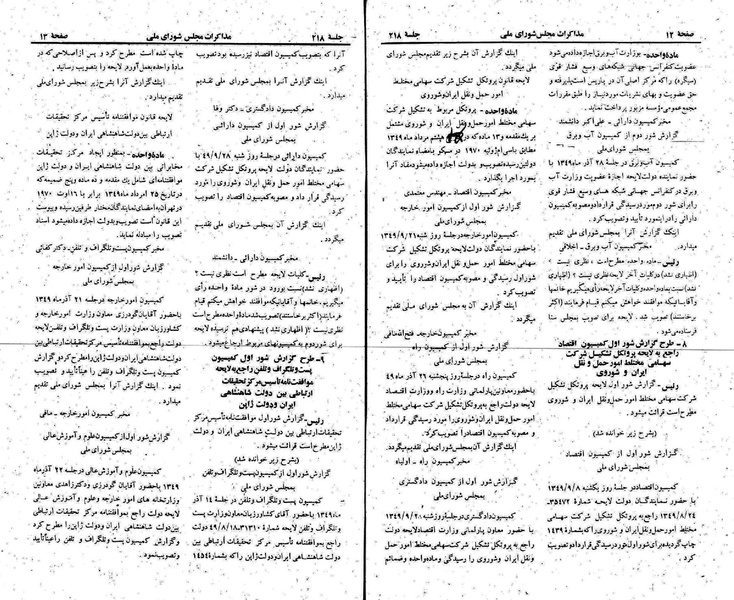 صفحهٔ ۱۲
مذاکرات مجلس شورای ملی
جلسهٔ ۲۱۸
مادهٔ واحده- بوزارت آب و برق اجازه داده میشود
عضویت کنفرانس جهانی شبکه‌های وسیع فشار قوی
(سیگره) را که مرکز اصلی آن در پاریس است پذیرفته و
حق عضویت و بهای نشریات موردنیاز را طبق مقررات
مجمع عمومی مؤسسه مزبور پرداخت نماید.
مخبر کمیسیون دارائی- علی‌اکبر دانشمند
گزارش شور دوم از کمیسیون آب و برق
بمجلس شورای ملی
کمیسیون آب و برق در جلسهٔ ۲۸ آذر ماه ۱۳۴۹ با
حضور نماینده دولت لایحه اجازه عضویت وزارت آب و
برق در کنفرانس جهانی شبکه های وسیع فشار قوی را
برای شور دوم مورد رسیدگی قرار داد و مصوبه کمیسیون
دارائی را در این مورد تأیید و تصویب کرد.
اینک گزارش آنرا بمجلس شورای ملی تقدیم
میدارد.
مخبر کمیسیون آب و برق- اخلاقی
رئیس- ماده واحده مطرح است، نظری نیست؟
(اظهاری نشد) در کلیات آخر لایحه نظری نیست؟ (اظهاری
نشد) به ماده واحده و کلیات آخر لایحه رأی میگیریم خانمها
و آقایانیکه موافقند خواهش میکنم قیام فرمایند (اکثر
برخاستند) تصویب شد. لایحه برای تصویب مجلس سنا
فرستاده میشود.
۸- طرح گزارش شور اول کمیسیون اقتصاد
راجع به لایحه پروتکل تشکیل شرکت
سهامی مختلط امور حمل و نقل
ایران و شوروی
رئیس- گزارش شور اول لایحه پروتکل تشکیل
شرکت سهامی مختلط امور حمل و نقل ایران و شوروی
مطرح است قرائت میشود.
(بشرح زیر خوانده شد)
گزارش شور اول از کمیسیون اقتصاد
بمجلس شورای ملی
کمیسیون اقتصاد در جلسهٔ روز یکشنبه ۱۳۴۹/۹/۸
با حضور نمایندگان دولت لایحه شمارهٔ ۳۵۴۷۲-
۱۳۴۹/۸/۲۴ راجع به پروتکل تشکیل شرکت سهامی
مختلط امور حمل و نقل ایران و شوروی را که بشماره ۱۴۳۹
چاپ گردیده برای شور اول مورد رسیدگی قرار داد و تصویب
کرد.
اینک گزارش آن بشرح زیر تقدیم مجلس شورای
ملی میگردد.
لایحه قانون پروتکل تشکیل شرکت سهامی مختلط
امور حمل و نقل ایران و شوروی
مادهٔ واحده- پروتکل مربوط به تشکیل شرکت
سهامی مختلط امور حمل و نقل ایران و شوروی مشتمل
بر یک مقدمه و ۱۳ ماده که در هشتم مرداد ماه ۱۳۴۹
مطابق با سی‌ام ژوئیه ۱۹۷۰ در مسکو بامضاء نمایندگان
دولتین رسیده تصویب و بدولت اجازه داده میشود مفاد آنرا
بمورد اجرا بگذارد.
مخبر کمیسیون اقتصاد- مهندس معتمدی
گزارش شور اول از کمیسیون امور خارجه
بمجلس شورای ملی
کمیسیون امور خارجه در جلسهٔ روز شنبه ۱۳۴۹/۹/۲۱
با حضور نمایندگان دولت لایحه پروتکل تشکیل شرکت
سهامی مختلط امور حمل و نقل ایران و شوروی را برای
شور اول رسیدگی و مصوبه کمیسیون اقتصاد را تأیید و
تصویب کرد.
اینک گزارش آن به مجلس شورای ملی تقدیم
میگردد.
مخبر کمیسیون خارجه- فتح‌الله مافی
گزارش شور اول از کمیسیون راه
بمجلس شورای ملی
کمیسیون راه در جلسهٔ روز پنجشنبه ۲۶ آذر ماه ۴۹
با حضور معاونین پارلمانی وزارت راه و وزارت اقتصاد
لایحه دولت راجع به پروتکل تشکیل شرکت سهامی
مختلط امور حمل و نقل ایران و شوروی را مورد رسیدگی قرار داد
و مصوبه کمیسیون اقتصاد را تصویب کرد.
اینک گزارش آن بمجلس شورای ملی تقدیم میگردد.
مخبر کمیسیون راه- اولیاء
گزارش شور اول از کمیسیون دادگستری
بمجلس شورای ملی
کمیسیون دادگستری در جلسهٔ روز شنبه ۱۳۴۹/۹/۲۸
با حضور معاون پارلمانی وزارت اقتصاد لایحه دولت
راجع به پروتکل تشکیل شرکت سهامی مختلط امور حمل
و نقل ایران و شوروی را رسیدگی و ماده واحده و ضمائم
جلسهٔ ۲۱۸
مذاکرات مجلس شورای ملی
صفحهٔ ۱۳
آنرا که بتصویب کمیسیون اقتصاد نیز رسیده بود تصویب
کرد.
اینک گزارش آنرا بمجلس شورای ملی تقدیم
میدارد.
مخبر کمیسیون دادگستری- دکتر وفا
گزارش شور اول از کمیسیون دارائی
بمجلس شورای ملی
کمیسیون دارائی در جلسهٔ روز شنبه ۴۹/۹/۲۸ با
حضور نمایندگان دولت لایحه پروتکل تشکیل شرکت
سهامی مختلط امور حمل و نقل ایران و شوروی را مورد
رسیدگی قرار داد و مصوبه کمیسیون اقتصاد را تصویب
کرد.
اینک گزارش آن بمجلس شورای ملی تقدیم
میگردد.
مخبر کمیسیون دارائی- دانشمند
رئیس- کلیات لایحه مطرح است نظری نیست؟
(اظهاری نشد) نسبت بورود در شور مادهٔ واحده رأی
میگیریم، خانمها و آقایانیکه موافقند خواهش میکنم قیام
فرمایند (اکثر برخاستند) تصویب شد ماده واحده مطرح است
نظری نیست؟ (اظهاری نشد) پیشنهادی هم نرسیده لایحه
برای شور دوم به کمیسیونهای مربوط ارجاع میشود.
۹- طرح گزارش شور اول کمیسیون
پست و تلگراف و تلفن راجع به لایحه
موافقتنامه تأسیس مرکز تحقیقات
ارتباطی بین دولت شاهنشاهی
ایران و دولت ژاپن
رئیس- گزارش شور اول موافقتنامه تأسیس مرکز
تحقیقات ارتباطی بین دولت شاهنشاهی ایران و دولت
ژاپن مطرح است قرائت میشود.
(بشرح زیر خوانده شد)
گزارش شور اول از کمیسیون پست و تلگراف و تلفن
بمجلس شورای ملی
کمیسیون پست و تلگراف و تلفن در جلسهٔ ۱۴ آذر
ماه ۱۳۴۹ با حضور آقای کشاورزیان معاون وزارت پست
و تلگراف و تلفن لایحه شمارهٔ ۳۱۳۱۰-۴۹/۸/۱۸
دولت راجع بموافقتنامه تأسیس مرکز تحقیقات ارتباطی بین
دولت شاهنشاهی ایران و دولت ژاپن را که بشمارهٔ ۱۴۵۴
چاپ شده است مطرح کرد و پس از اصلاحی که در
مادهٔ واحده بعمل آورد لایحه را بتصویب رسانید.
اینک گزارش آنرا بشرح زیر بمجلس شورای ملی
تقدیم میدارد.
لایحه قانون موافقتنامه تأسیس مرکز تحقیقات
ارتباطی بین دولت شاهنشاهی ایران و دولت ژاپن
مادهٔ واحده- بمنظور ایجاد مرکز تحقیقات
مخابراتی بین دولت شاهنشاهی ایران و دولت ژاپن
موافقتنامه‌ای شامل یک مقدمه و ده ماده و پنج ضمیمه که
در تاریخ ۲۵ مرداد ماه ۱۳۴۹ برابر با ۱۶ اوت ۱۹۷۰
در تهران به امضای نمایندگان مختار طرفین رسیده و پیوست
این قانون است تصویب و بدولت اجازه داده میشود اسناد
تصویب را مبادله نماید.
مخبر کمیسیون پست و تلگراف و تلفن- دکتر کفائی
گزارش شور اول از کمیسیون امور خارجه
بمجلس شورای ملی
کمیسیون امور خارجه در جلسه ۲۱ آذر ماه ۱۳۴۹
با حضور آقایان گودرزی معاون وزارت امور خارجه و
کشاورزیان معاون وزارت پست و تلگراف و تلفن لایحه
تصویب موافقتنامه تأسیس مرکز تحقیقات ارتباطی بین
دولت شاهنشاهی ایران و دولت ژاپن را مطرح کرد و گزارش
کمیسیون پست و تلگراف و تلفن را عیناً تأیید و تصویب
نمود. اینک گزارش آنرا بمجلس شورای ملی تقدیم
میدارد.
مخبر کمیسیون امور خارجه- مافی
گزارش شور اول از کمیسیون علوم و آموزش عالی
بمجلس شورای ملی
کمیسیون علوم و آموزش عالی در جلسهٔ ۲۲ آذر ماه
۱۳۴۹ با حضور آقایان گودرزی و دکتر زاهدی معاونین
وزارتخانه های امور خارجه و علوم و آموزش عالی
لایحه دولت راجع بموافقتنامه تأسیس مرکز تحقیقات ارتباطی
بین دولت شاهنشاهی ایران و دولت ژاپن را مطرح کرد
و گزارش کمیسیون پست و تلگراف و تلفن را عیناً تأیید
و تصویب نمود.